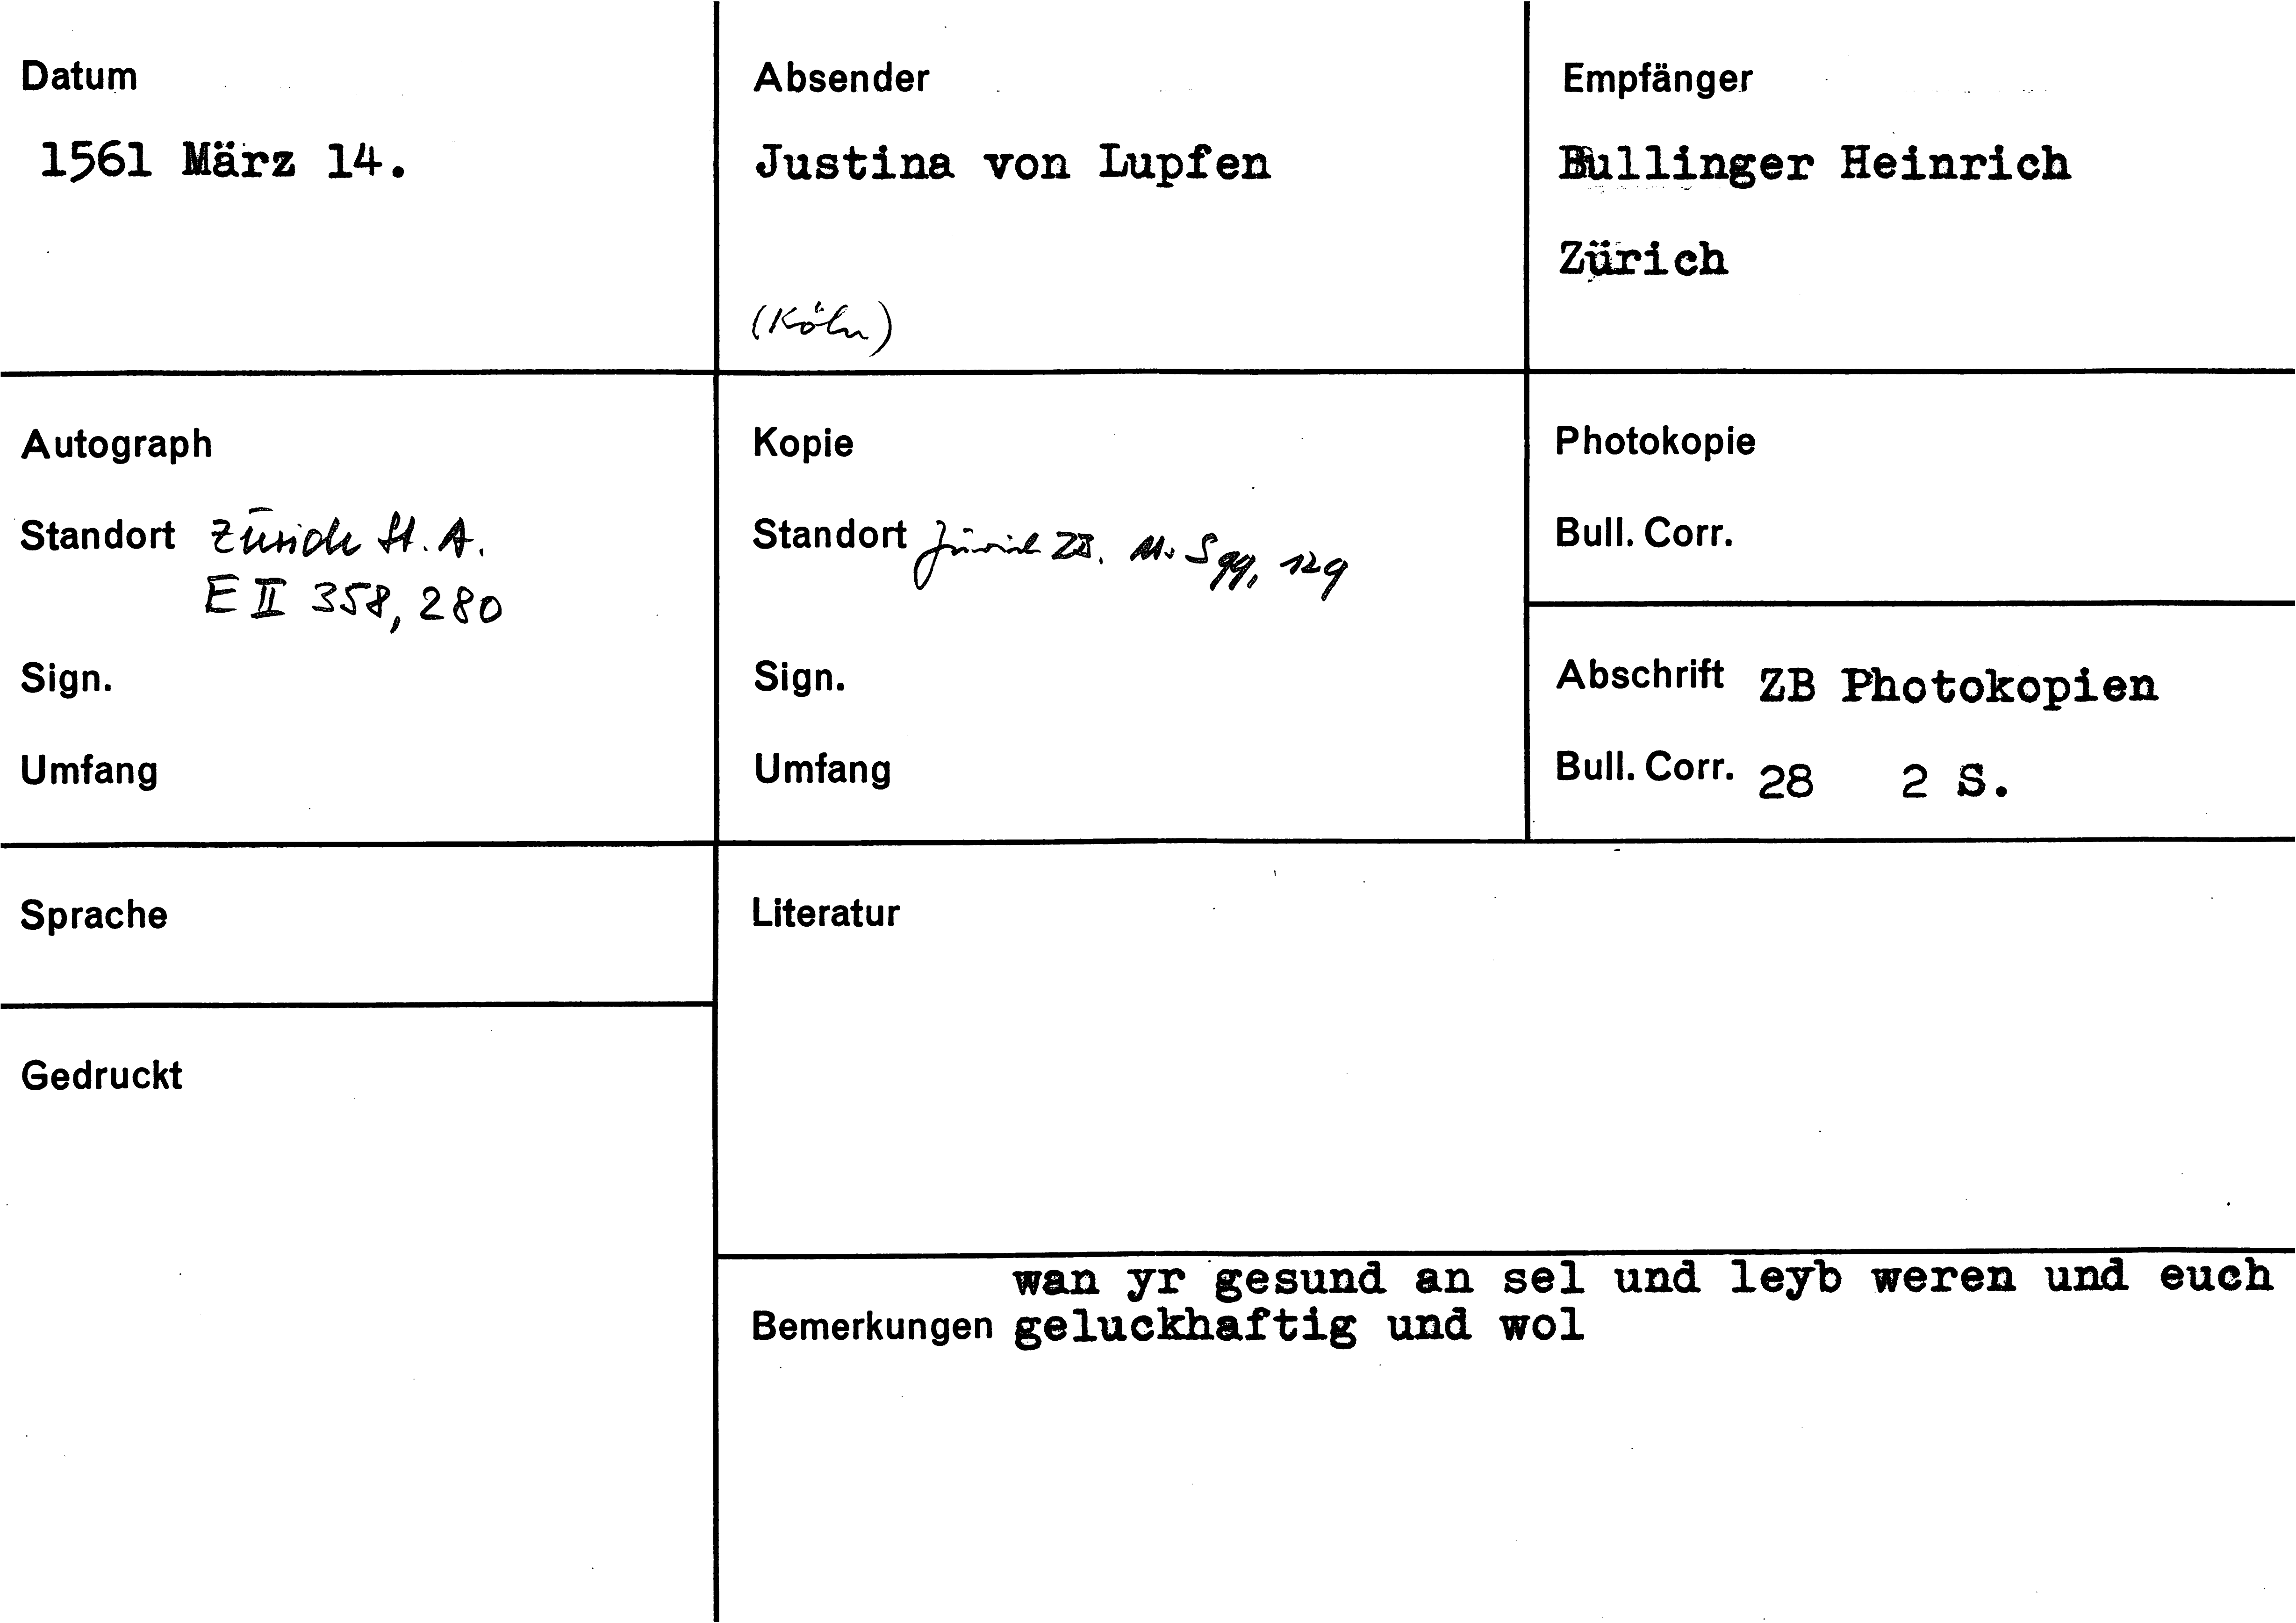 Datum
1561 März 14.
Absender
Justina von Lupfen
(Köln)
Empfänger
Bullinger Heinrich
Zürich
Autograph
Standort Zürich St. A.
E II 358, 280
Sign.
Umfang
Kopie
Standort Zürich ZB. Ms S 99, 129
Sign.
Umfang
Photokopie
Bull. Corr.
Abschrift ZB Photokopien
Bull. Corr. 28 2 S.
Sprache
Gedruckt
Literatur
wan yr gesund an sel und leyb weren und euch
Bemerkungen geluckhaftig und wol